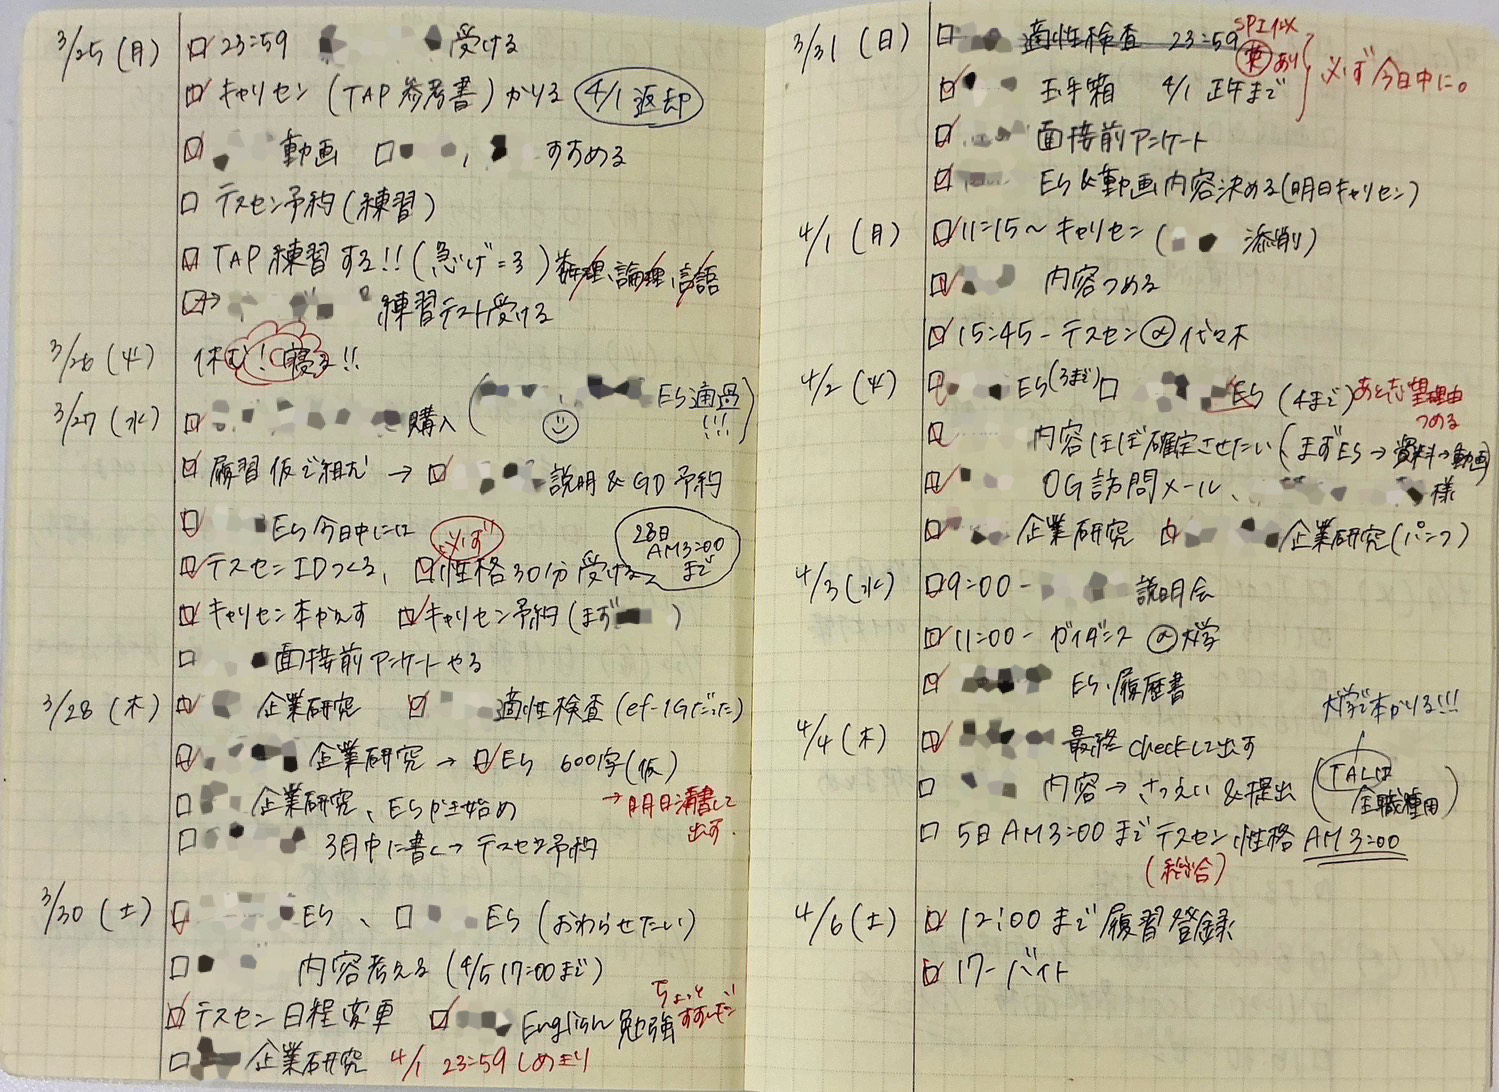 3/25(月) □ 23:59 受ける
□ キャリセン(TAP参考書)かりる 4/1返却
□ 動画 □ 、 すすめる
□ テスセン予約(練習)
□ TAP練習する!!(急げ=3) 数理、論理、言語
□→ 練習テスト受ける
3/26(火) 休む!(寝る!!
3/27(水) □ 購入 ( ES通過!!!)
□ 履習仮で組む → □ 説明&GD予約
□ ES今日中には 必ず 28日AM3:00まで
□ テスセンIDつくる、□性格30分受ける
□ キャリセン本かえす □キャリセン予約(まず )
□ 面接前アンケートやる
3/28(木) □ 企業研究 □ 適性検査(ef-1Gだった)
□ 企業研究 → □ES 600字(仮)
□ 企業研究、ESかき始め →明日清書して出す.
□ 3月中に書く→テスセン予約
3/30(土) □ ES、□ ES(おわらせたい)
□ 内容考える(4/5 17:00まで)
□ テスセン日程変更 □ English勉強 ちょっとすすんだ!
□ 企業研究 4/1 23:59しめきり
3/31(日) □ 適性検査 23:59 SPI 英あり
□ 玉手箱 4/1 正午まで 必ず今日中に。
□ 面接前アンケート
□ ES&動画内容決める(明日キャリセン)
4/1(月) □11:15〜キャリセン( 添削)
□ 内容つめる
□15:45-テスセン@代々木
4/2(火) □ ES(3まで) □ ES(4まで) あと志望理由つめる
□ 内容ほぼ確定させたい(まずES→資料→動画)
□ OG訪問メール、 様
□ 企業研究 □ 企業研究(パンフ)
4/3(水) □9:00- 説明会
□11:00- ガイダンス@大学
□ ES、履歴書
大学で本かりる!!!
4/4(木) □ 最終checkして出す
□ 内容→さつえい&提出 (TALは全職種用)
□ 5日AM3:00までテスセン性格 AM3:00
(総合)
4/6(土) □ 12:00まで履習登録
□ 17-バイト